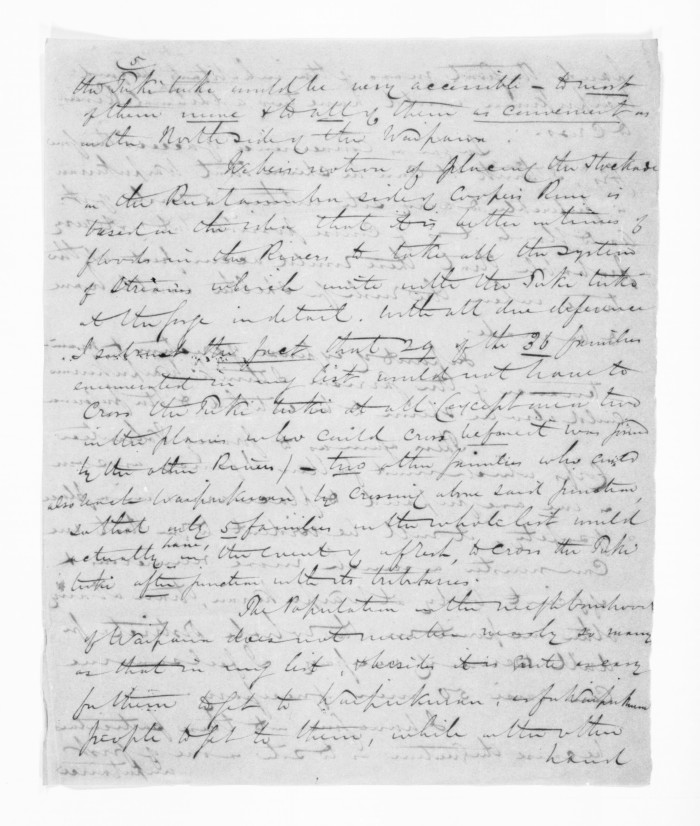 5
the Tuki tuki would be very accessible – to most
of them none & to all of them as convenient as
on the North side of the Waipawa.
notion of placing the Stockade
on the Ruataniwha side of Coopers Run is
based on the idea that it is better in times of
floods in the Rivers to take all the system
of streams which unite with the Tuki tuki
at the gorge in detail. With all due deference
I submit the fact that 29 of the 36 families
enumerated in my list would not have to
cross the Tuki tuki at all (except one or two
in the plains who could cross before it was joined
by the other Rivers) – two other families who could
also reach Waipukurau by crossing above said junction,
so that only 5 families in the whole list would
actually have, in the event of a fresh, to cross the Tuki
tuki after junction with its tributaries.
The Population in the neighbourhood
of Waipawa does not number nearly so many
as that in my list, & besides it is quite as easy
for them to get to Waipukurau, as for Waipukurau
people to get to them, while on the other
hand